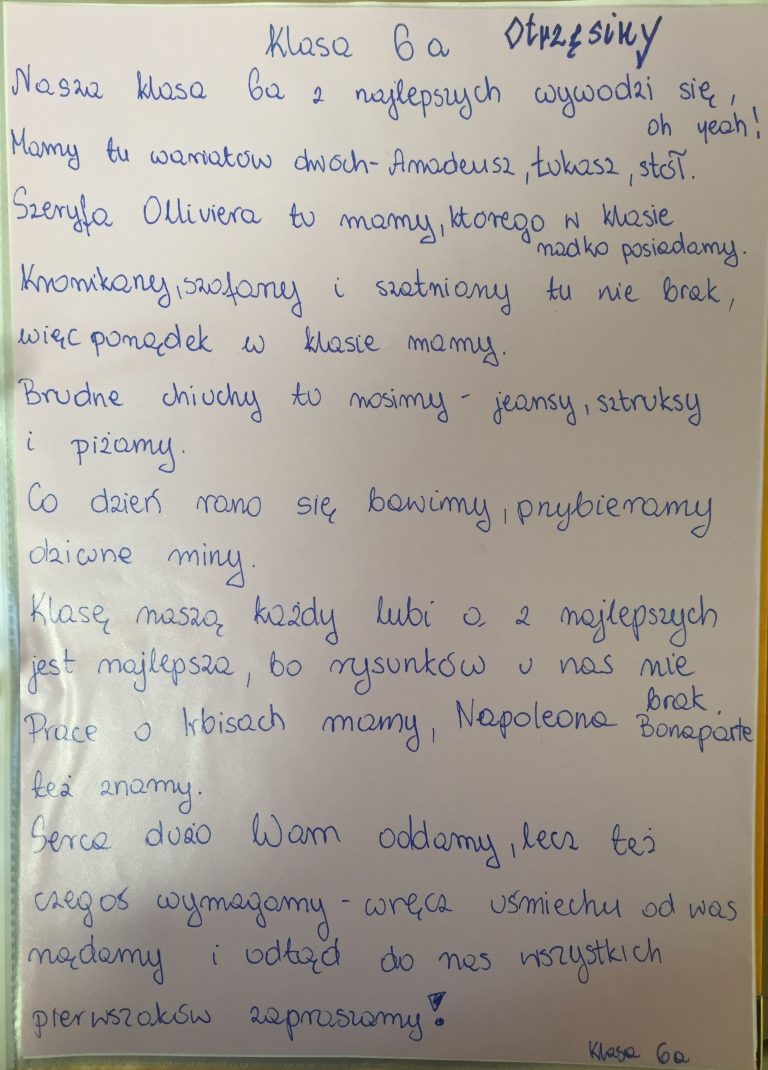 Klasa 6a Otrzęsiny
Nasza klasa 6a z najlepszych wywodzi się,
oh yeah!
Mamy tu wariatów dwóch - Amadeusz, Łukasz, stół.
Szeryfa Olliviera tu mamy, którego w klasie
rzadko posiadamy.
Kronikarzy, szafarzy i szatniarzy tu nie brak,
więc porządek w klasie mamy.
Brudne chiuchy tu nosimy - jeansy, sztruksy
i piżamy.
Co dzień rano się bawimy, przybieramy
dziwne miny.
Klasę naszą każdy lubi o, z najlepszych
jest najlepsza, bo rysunków u nas nie
brak.
Prace o Irbisach mamy, Napoleona Bonaparte
też znamy.
Serca dużo Wam oddamy, lecz też
czegoś wymagamy - wręcz uśmiechu od was
rządamy i odtąd do nas wszystkich
pierwszaków zapraszamy!
Klasa 6a